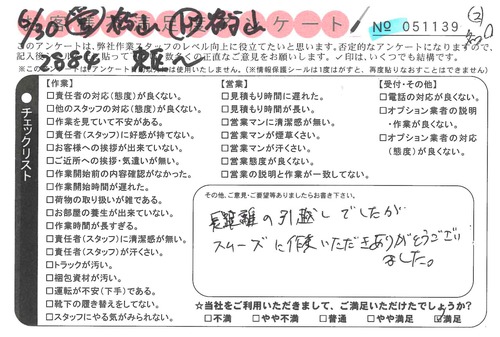 お客様大満足度アンケート
№ 051139
このアンケートは、弊社作業スタッフのレベル向上に役立てたいと思います。否定的なアンケートになりますので、
直なご意見をお願いします。✓印は、いくつでも結構です。
使用いたしません。(※情報保護シールは1度はがすと、再度貼りなおすことはできません)
チェックリスト
【作業】
□責任者の対応(態度)が良くない。
□他のスタッフの対応(態度)が良くない。
□作業を見ていて不安がある。
□責任者(スタッフ)に好感が持てない。
□お客様への挨拶が出来ていない。
□ご近所への挨拶・気遣いが無い。
□作業開始前の内容確認がなかった。
□作業開始時間が遅れた。
□荷物の取り扱いが雑である。
□お部屋の養生が出来ていない。
□作業時間が長すぎる。
□責任者(スタッフ)に清潔感が無い。
□責任者(スタッフ)が汗くさい。
□トラックが汚い。
□梱包資材が汚い。
□運転が不安(下手)である。
□靴下の履き替えをしていない。
□スタッフにやる気がみられない。
【営業】
□見積もり時間に遅れた。
□見積もり時間が長い。
□営業マンに清潔感が無い。
□営業マンが煙草くさい。
□営業マンが汗くさい。
□営業態度が良くない。
□営業の説明と作業が一致してない。
【受付・その他】
□電話の対応が良くない。
□オプション業者の説明
・作業が良くない。
□オプション業者の対応
(態度)が良くない。
その他、ご意見・ご要望等ありましたらお書き下さい。
長距離の引越しでしたが
スムーズに作業いただきありがとうござい
ました。
☆当社をご利用いただきまして、ご満足いただけたでしょうか?
□不満 □やや不満 □普通 □やや満足 ☑満足